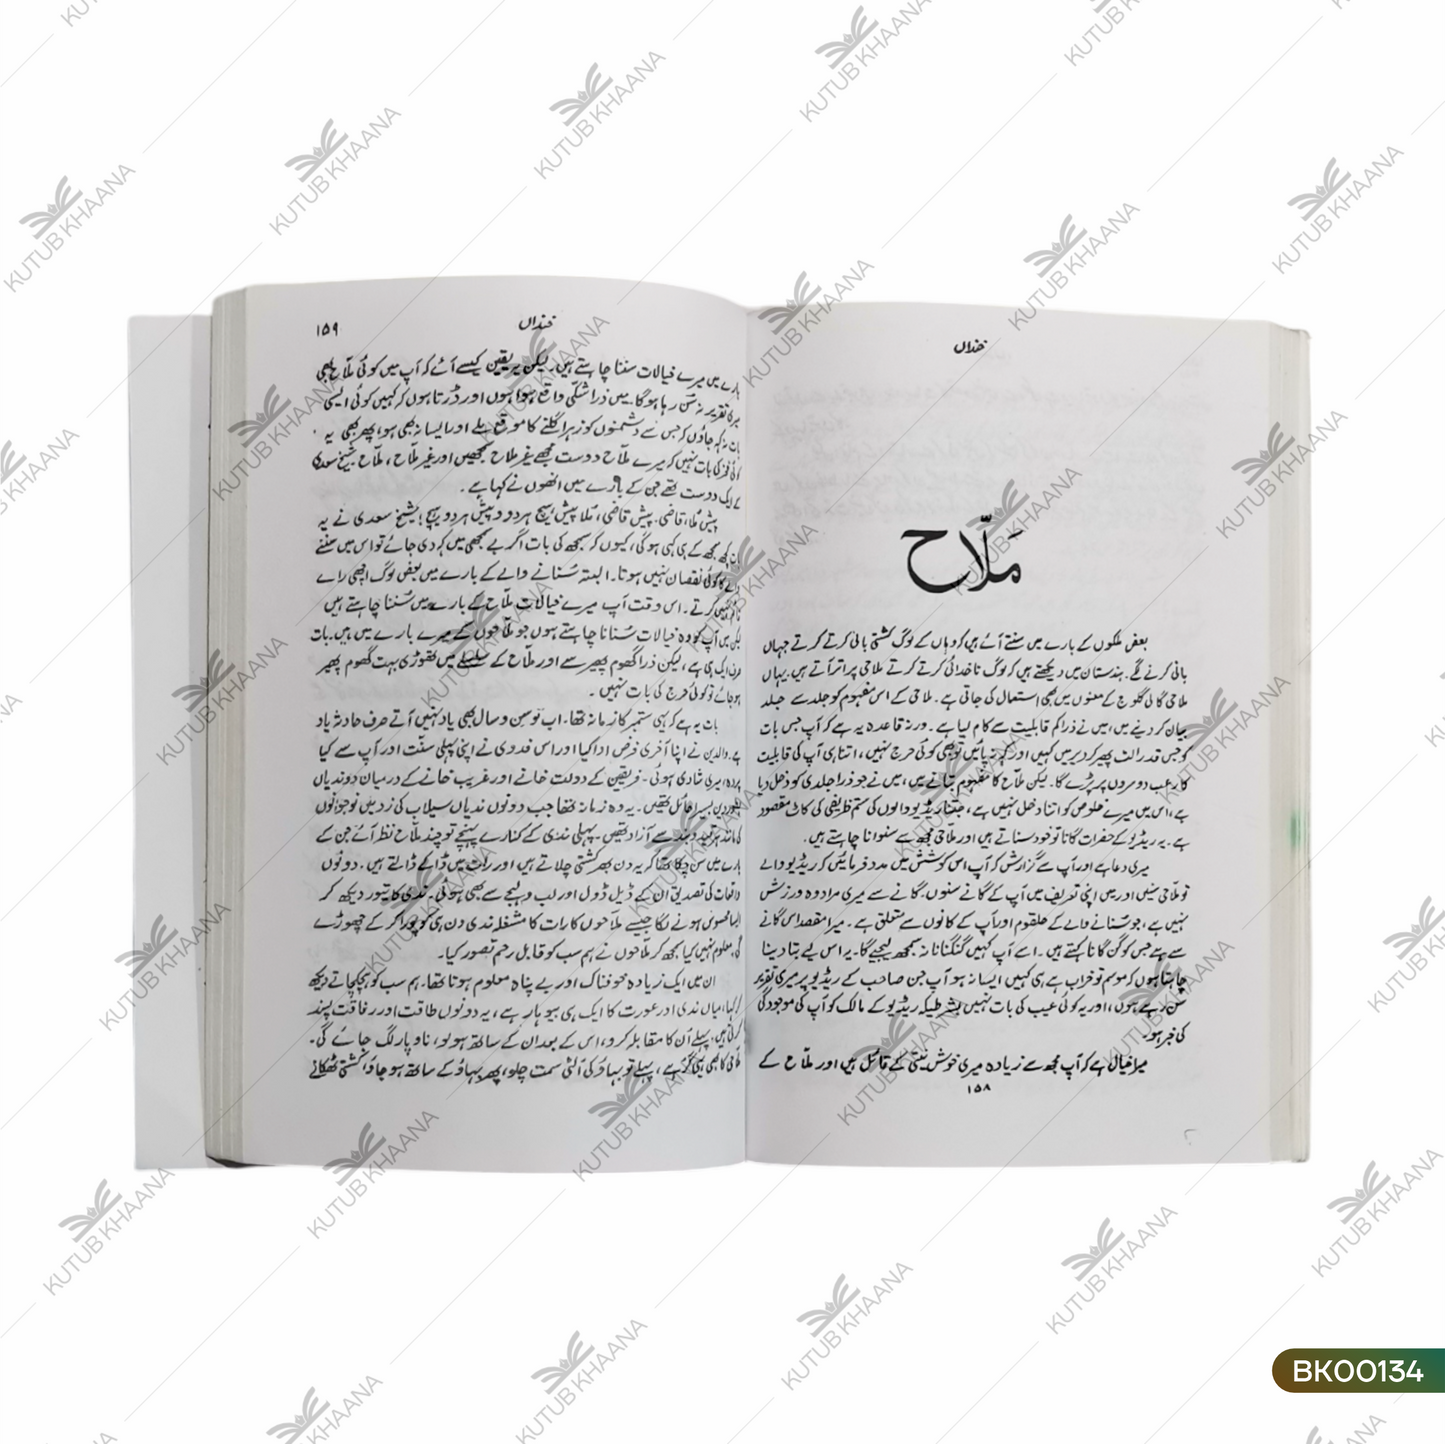 خنداں
ملّاح
بعض ملکوں کے بارے میں سنتے آئے ہیں کہ وہاں کے لوگ کشتی بانی کرتے کرتے جہاں
بانی کرنے لگے۔ ہندستان میں دیکھتے ہیں کہ لوگ ناخدائی کرتے کرتے ملاحی پر اتر آتے ہیں۔ یہاں
ملاحی گالی گلوج کے معنوں میں بھی استعمال کی جاتی ہے۔ ملاحی کے اس مفہوم کو جلد سے جلد
بیان کر دینے میں، میں نے ذرا کم قابلیت سے کام لیا ہے۔ ورنہ قاعدہ یہ ہے کہ آپ جس بات
کو جس قدر الٹ پھیر کر دیر میں کہیں اور کہہ نہ پائیں تو بھی کوئی حرج نہیں، اتنا ہی آپ کی قابلیت
کا رعب دوسروں پر پڑے گا۔ لیکن ملّاح کا مفہوم بتانے میں، میں نے جو ذرا جلدی کو دخل دیا
ہے، اس میں میرے خلوص کو اتنا دخل نہیں ہے، جتنا ریڈیو والوں کی ستم ظریفی کی کاٹ مقصود
ہے۔ یہ ریڈیو کے حضرات گانا تو خود سناتے ہیں اور ملاحی مجھ سے سنوانا چاہتے ہیں۔
میری دعا ہے اور آپ سے گزارش کہ آپ اس کوشش میں مدد فرمائیں کہ ریڈیو والے
تو ملاحی سنیں اور میں اپنی تعریف میں آپ کے گانے سنوں۔ گانے سے میری مراد وہ ورزش
نہیں ہے، جو سنانے والے کے حلقوم اور آپ کے کانوں سے متعلق ہے۔ میرا مقصد اس گانے
سے ہے جس کو گن گانا کہتے ہیں۔ اسے آپ کہیں گنگنانا نہ سمجھ لیجیے گا۔ یہ اس لیے بتا دینا
چاہتا ہوں کہ موسم تو خراب ہے ہی کہیں ایسا نہ ہو آپ جن صاحب کے ریڈیو پر میری تقریر
سن رہے ہوں، اور یہ کوئی عیب کی بات نہیں بشرطیکہ ریڈیو کے مالک کو آپ کی موجودگی
کی خبر ہو۔
میرا خیال ہے کہ آپ مجھ سے زیادہ میری خوش نیتی کے قائل ہیں اور ملّاح کے
۱۵۸
خنداں
۱۵۹
بارے میں میرے خیالات سننا چاہتے ہیں۔ لیکن یہ یقین کیسے آئے کہ آپ میں کوئی ملّاح بھی
میری تقریر نہ سُن رہا ہوگا۔ میں ذرا شکی واقع ہوا ہوں اور ڈرتا ہوں کہ کہیں کوئی ایسی
بات نہ کہہ جاؤں کہ جس سے دشمنوں کو زہر اگلنے کا موقع ملے اور ایسا نہ بھی ہو، پھر بھی یہ
کوئی فخر کی بات نہیں کہ میرے ملّاح دوست مجھے غیر ملّاح سمجھیں اور غیر ملّاح، ملّاح شیخ سعدی
کے ایک دوست تھے جن کے بارے میں انھوں نے کہا ہے۔
پیش مُلّا، قاضی۔ پیش قاضی، مُلّا پیش ہیچ ہر دو و پیش ہر دو ہیچ! شیخ سعدی نے یہ
بات کچھ سمجھ کے ہی کہی ہوگی، کیوں کہ سمجھ کی بات اگر بے سمجھی میں کہہ دی جائے تو اس میں سننے
والے کا کوئی نقصان نہیں ہوتا۔ البتہ سنانے والے کے بارے میں بعض لوگ اچھی رائے
قائم نہیں کرتے۔ اس وقت آپ میرے خیالات ملّاح کے بارے میں سُننا چاہتے ہیں
لیکن میں آپ کو وہ خیالات سُنانا چاہتے ہوں جو ملّاحوں کے میرے بارے میں ہیں۔ بات
وہی ایک ہی ہے، لیکن ذرا گھوم پھیر سے اور ملّاح کے سلسلے میں تھوڑی بہت گھوم پھیر
ہو جائے تو کوئی حرج کی بات نہیں۔
بات یہ ہے کہ یہی ستمبر کا زمانہ تھا۔ اب تو سن و سال بھی یاد نہیں آتے صرف حادثہ یاد
ہے۔ والدین نے اپنا آخری فرض ادا کیا اور اس فدوی نے اپنی پہلی سنّت اور آپ سے کیا
پردہ، میری شادی ہوئی۔ فریقین کے دولت خانے اور غریب خانے کے درمیان دو ندیاں
بسیرا حائل تھیں۔ یہ وہ زمانہ تھا جب دونوں ندیاں سیلاب کی زد میں نوجوانوں
کی مانند ہر قید و بند سے آزاد تھیں۔ پہلی ندی کے کنارے پہنچے تو چند ملّاح نظر آئے جن کے
بارے میں سن چکا تھا کہ یہ دن بھر کشتی چلاتے ہیں اور رات میں ڈاکے ڈالتے ہیں۔ دونوں
واقعات کی تصدیق ان کے ڈیل ڈول اور لب و لہجے سے بھی ہوئی۔ ندی کا تیور دیکھ کر
ایسا محسوس ہونے لگا جیسے ملّاحوں کا رات کا مشغلہ ندی دن ہی کو پورا کر کے چھوڑے
گی۔ معلوم نہیں کیا سمجھ کر ملّاحوں نے ہم سب کو قابل رحم تصور کیا۔
ان میں ایک زیادہ خوفناک اور بے پناہ معلوم ہوتا تھا۔ ہم سب کو ہچکچاتے دیکھ
کر کہا، میاں ندی اور عورت کا ایک ہی بیوہار ہے، یہ دونوں طاقت اور رفاقت پسند
کرتی ہیں، پہلے اُن کا مقابلہ کرو، اس کے بعد ان کے ساتھ ہو لو، ناؤ پار لگ جائے گی۔
ملاحی کا بھی یہی گُر ہے، پہلے تو بہاؤ کی اُلٹی سمت چلو، پھر بہاؤ کے ساتھ ہو جاؤ، کشتی ٹھکانے
KUTUB KHAANA
BK00134